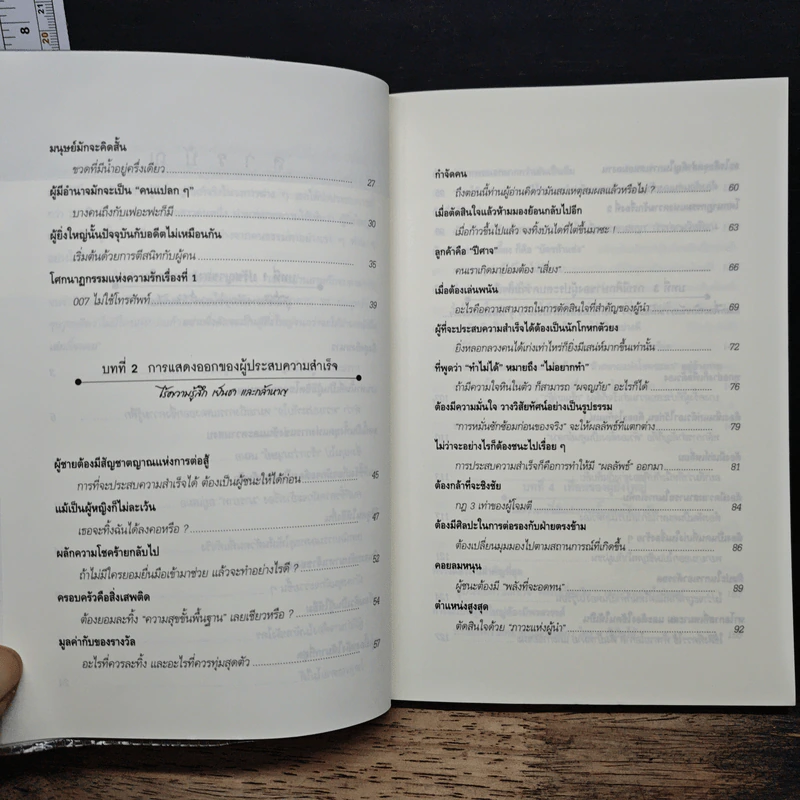 8
21
20
มนุษย์มักจะคิดสั้น
ขวดที่มีน้ำอยู่ครึ่งเดียว 27
ผู้มีอำนาจมักจะเป็น "คนแปลก ๆ"
บางคนถึงกับเฟอะฟะก็มี 30
ผู้ยิ่งใหญ่นั้นปัจจุบันกับอดีตไม่เหมือนกัน
เริ่มต้นด้วยการตีสนิทกับผู้คน 35
โศกนาฏกรรมแห่งความรักเรื่องที่ 1
007 ไม่ใช้โทรศัพท์ 39
บทที่ 2 การแสดงออกของผู้ประสบความสำเร็จ
ไร้ความรู้สึก เย็นชา และกล้าหาญ
ผู้ชายต้องมีสัญชาตญาณแห่งการต่อสู้
การที่จะประสบความสำเร็จได้ ต้องเป็นผู้ชนะให้ได้ก่อน 45
แม้เป็นผู้หญิงก็ไม่ละเว้น
เธอจะทิ้งฉันได้ลงคอหรือ ? 47
ผลักความโชคร้ายกลับไป
ถ้าไม่มีใครยอมยื่นมือเข้ามาช่วย แล้วจะทำอย่างไรดี ? 52
ครอบครัวคือสิ่งเสพติด
ต้องยอมละทิ้ง "ความสุขขั้นพื้นฐาน" เลยเชียวหรือ ? 54
มูลค่ากับของรางวัล
อะไรที่ควรละทิ้ง และอะไรที่ควรทุ่มสุดตัว 57
กำจัดคน
ถึงตอนนี้ท่านผู้อ่านคิดว่ามันสมเหตุสมผลแล้วหรือไม่ ? 60
เมื่อตัดสินใจแล้วห้ามมองย้อนกลับไปอีก
เมื่อก้าวขึ้นไปแล้ว จงทิ้งบันไดที่ไต่ขึ้นมาซะ ! 63
ลูกค้าคือ "ปีศาจ"
คนเราเกิดมาย่อมต้อง "เสี่ยง" 66
เมื่อต้องเล่นพนัน
อะไรคือความสามารถในการตัดสินใจที่สำคัญของผู้นำ 69
ผู้ที่จะประสบความสำเร็จได้ต้องเป็นนักโกหกตัวยง
ยิ่งหลอกลวงคนได้เก่งเท่าไหร่ก็ยิ่งมีเสน่ห์มากขึ้นเท่านั้น 72
ที่พูดว่า "ทำไม่ได้" หมายถึง "ไม่อยากทำ"
ถ้ามีความใจหินในตัว ก็สามารถ "ผจญภัย" อะไรก็ได้ 76
ต้องมีความมั่นใจ วางวิสัยทัศน์อย่างเป็นรูปธรรม
"การหมั่นซักซ้อมก่อนของจริง" จะให้ผลลัพธ์ที่แตกต่าง 79
ไม่ว่าจะอย่างไรก็ต้องชนะไปเรื่อย ๆ
การประสบความสำเร็จก็คือการทำให้มี "ผลลัพธ์" ออกมา 81
ต้องกล้าที่จะชิงชัย
กฎ 3 เท่าของผู้โจมตี 84
ต้องมีศิลปะในการต่อรองกับฝ่ายตรงข้าม
ต้องเปลี่ยนมุมมองไปตามสถานการณ์ที่เกิดขึ้น 86
คอยลมหนุน
ผู้ชนะต้องมี "พลังที่จะอดทน" 89
ตำแหน่งสูงสุด
ตัดสินใจด้วย "ภาวะแห่งผู้นำ" 92